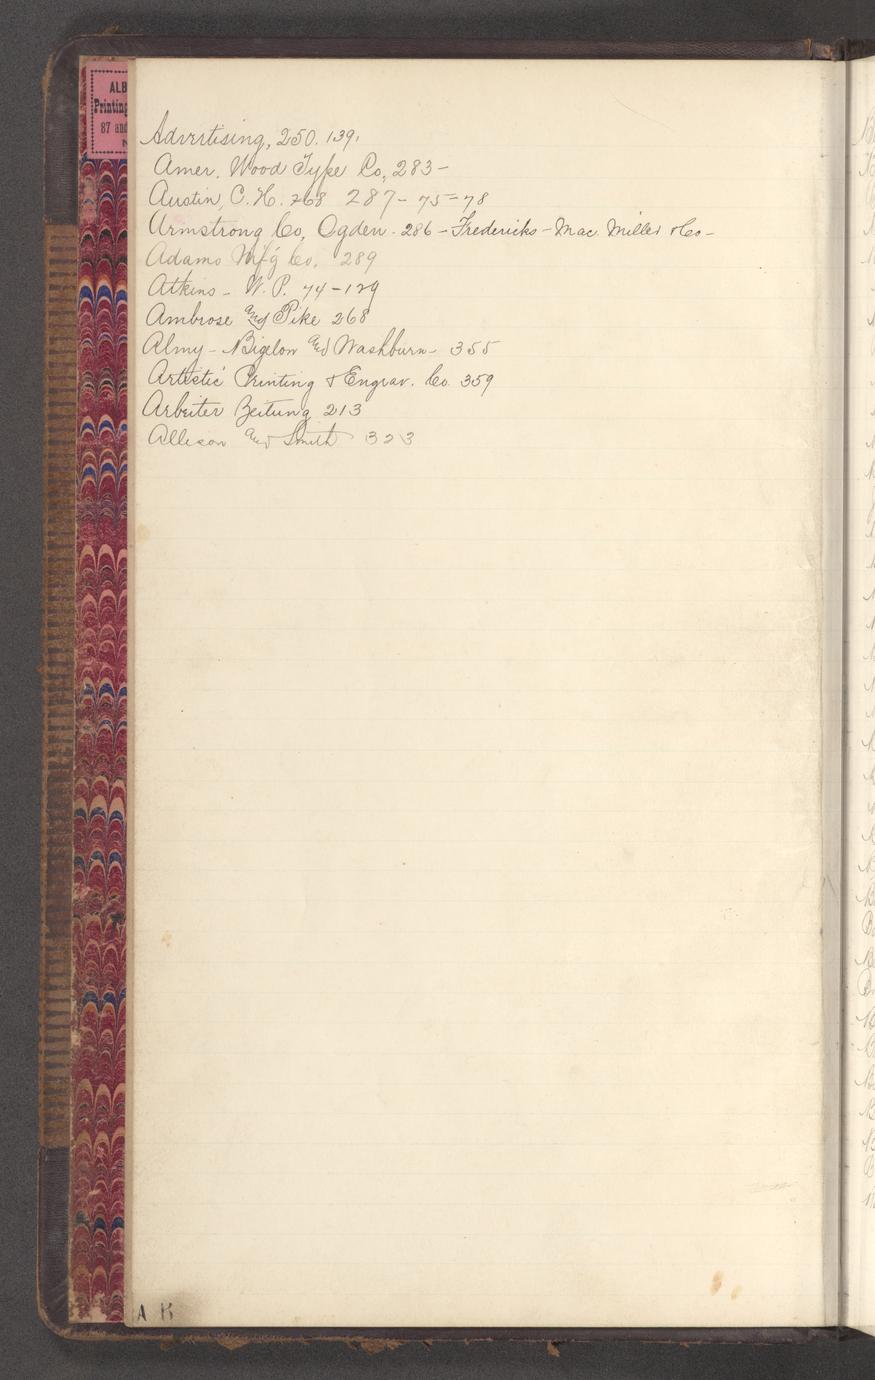 ALB
Printing
87 and
Advertising, 250. 139.
Amer. Wood Type Co, 283-
Austin, C. H. 268 287- 75-78
Armstrong Co, Ogden. 286 - Fredericks - Mac. Miller & Co-
Adams Mf'g Co. 289
Atkins - W. P. 74-129
Ambrose and Pike 268
Almy - Bigelow and Washburn- 355
Artistic Printing & Engrav. Co. 359
Arbeiter Zeitung 213
Allison and Smith 323
A B